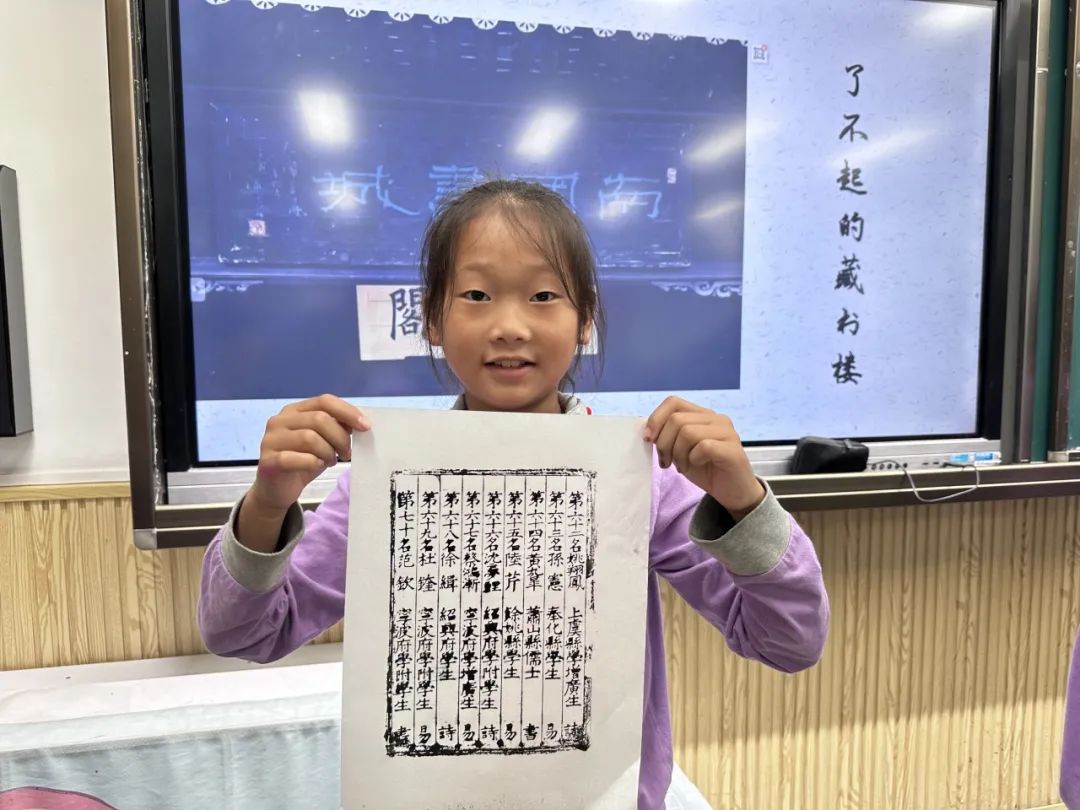 南國書城
閣
了不起的藏书楼
第六十二名姚翔鳳 上虞縣學增廣生 詩
第六十三名孫憲 奉化縣學生 易
第六十四名黃九皋 蕭山縣儒士 書
第六十五名陸芹 餘姚縣學生 易
第六十六名沈夢鯉 紹興府學附學生 詩
第六十七名蔡鴻漸 寧波府學增廣生 易
第六十八名徐緝 紹興府學生 詩
第六十九名杜 寧波府學附學生 易
第七十名范欽 寧波府學附學生 書